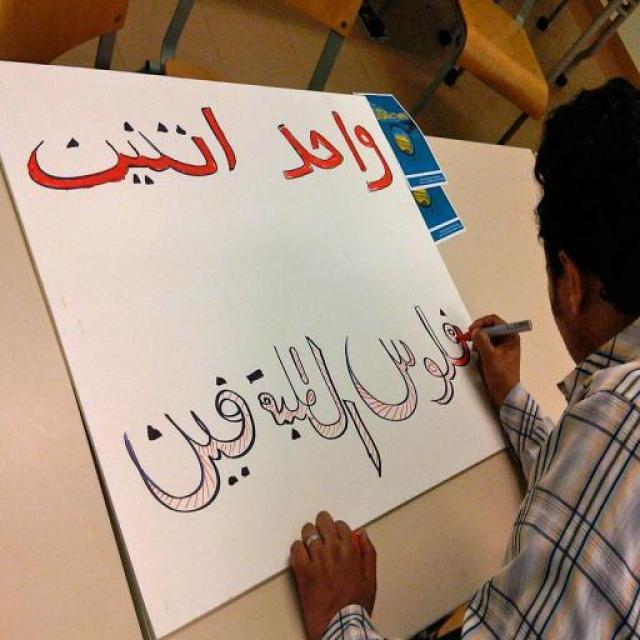 واحد اتنين
فلوس الطلبة فين